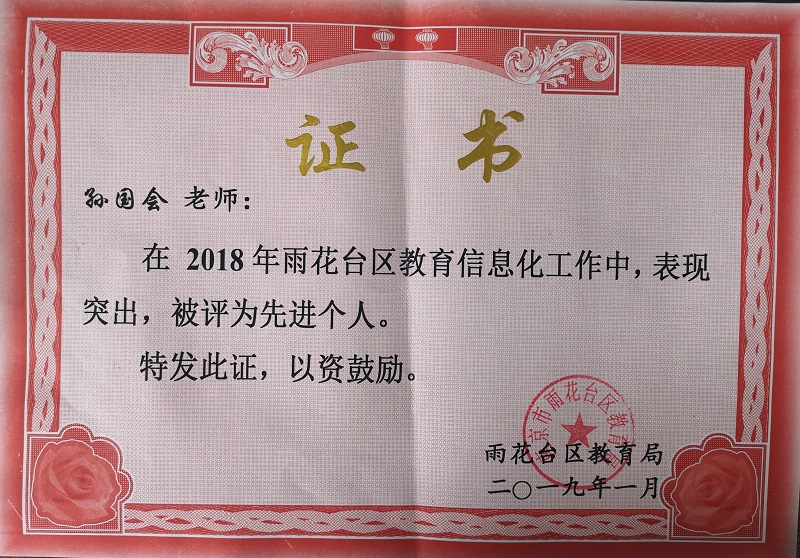 证书
孙国会 老师：
在 2018 年雨花台区教育信息化工作中，表现
突出，被评为先进个人。
特发此证，以资鼓励。
南京市雨花台区教育局
雨花台区教育局
二〇一九年一月